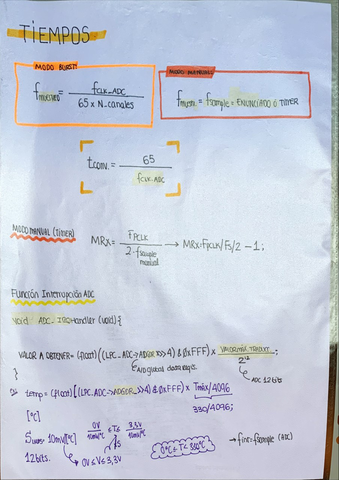 TIEMPOS
MODO BURST
fmuestreo = fCLK_ADC / 65 x N_canales
MODO MANUAL
fmuest. = fsample = ENUNCIADO Ó TIMER
tconv. = 65 / fCLK_ADC
MODO MANUAL (TIMER)
MRx = FPCLK / 2·fsample manual → MRx = FPCLK/FS/2 - 1;
Función Interrupción ADC
void ADC_IRQHandler (void) {
VALOR A OBTENER = (float)((LPC_ADC->ADGDR >>4) & 0xFFF) x
ADC global data regis.
2¹²
ADC 12 bits
}
temp = (float)((LPC_ADC->ADGDR >>4) & 0xFFF) x Tmáx/4096
330/4096;
[°C]
10mV/°C
0V / 10mV/°C ≤ T ≤ 3,3V / 10mV/°C
12 bits.
0V ≤ V ≤ 3,3V
0°C ≤ T ≤ 330°C
→ fint = fsample (ADC)